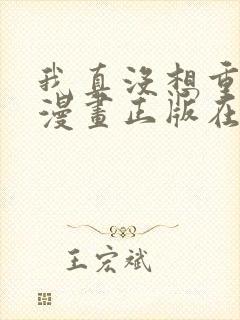 我真没想重
漫畫正版在
王宏斌